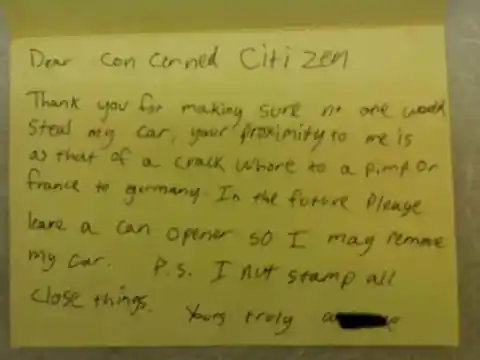 Dear con cerned Citizen
Thank you for making sure no one would
steal my car, your proximity to me is
as that of a crack whore to a pimp or
france to germany. In the future Please
leave a can opener so I may remove
my car. P.s. I nut stamp all
close things. Yours truly